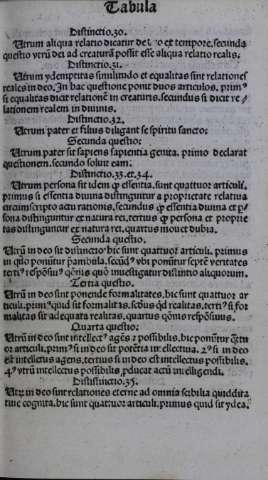 Tabula
Distinctio.30.
Utrum aliqua relatio dicatur de deo ex tempore, secunda
questio vtrũ dei ad creaturã possit esse aliqua relatio realis.
Distinctio.31.
Utrum ydemptitas similitudo et equalitas sint relationes
reales in deo. In hac questione ponit duos articulos, prim⁹
si equalitas dicit relationẽ in creaturis. secundus si dicit re⸗
lationem realem in diuinis.
Distinctio.32.
Utrum pater et filius diligant se spiritu sancto:
Secunda questio.
Utrum pater sit sapiens sapientia genita. primo declarat
questionem. secundo soluit eam.
Distinctio.33.et.34.
Utrum persona sit idem ꝙ essentia, sunt quattuor articuli.
primus si essentia diuina distinguitur a proprietate relatiua
circumscripto actu rationis, secundus ꝙ essentia diuina et p̃⸗
sona distinguitur ex natura rei, tertius ꝙ persona et proprie
tas distinguitur ex natura rei, quartus mouet dubia.
Secunda questio.
Utrũ in deo sit distinctio hic sunt quattuor articuli. primus
in quo ponũtur p̃ambula. secũd⁹ vbi ponũtur septẽ veritates
terti⁹ respõsiu⁹ quo inuestigatur distinctio aliquorum.
Tertia questio.
Utrũ in deo sunt ponende formalitates, hic sunt quattuor ar
ticuli. prim⁹ quid sit formalitas, secũd⁹ qd̃ realitas, terti⁹ si for
malitas sit adequata realitati, quartus q̃onis respõsiuus.
Quarta questio:
Utrũ in deo sint intellect⁹ agẽs ⁊ possibilis, hic ponuntur
or articuli, prim⁹ si in deo sit potẽtia intellectiua. 2⁹ si in deo
est intellectus agens, tertius si in deo est intellectus possibilis.
4⁹ vtrũ intellectus possibilis, ꝓducat actũ intelligendi.
Distinctio.35.
Utrũ in deo sint relationes eterne ad omnia scibilia quiddita
tiue cognita. hic sunt quattuor articuli. primus quid sit ydea.